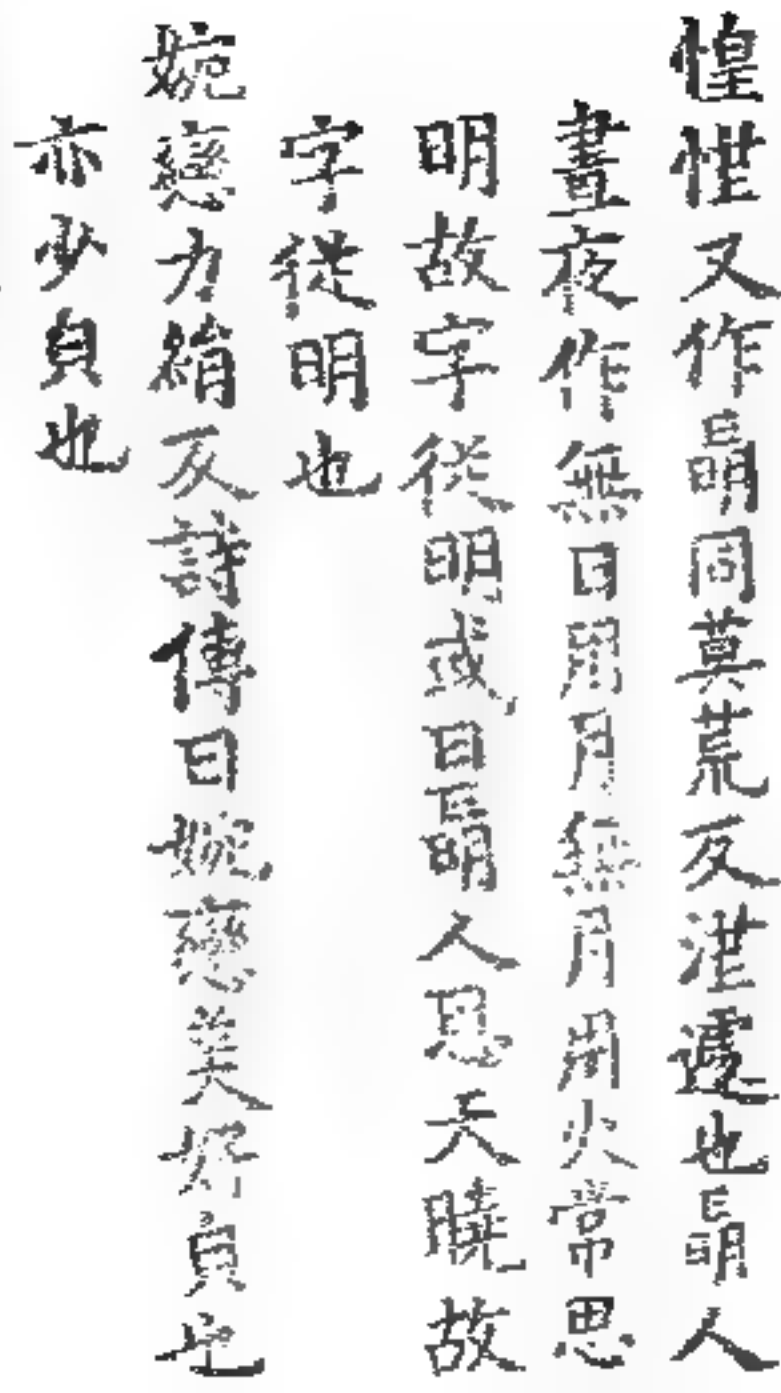 惶㤺又作朚同莫荒反茫遽也朚人
晝夜作無日用月無月用火常思
明故字從明或曰朚人思天曉故
字從明也
婉戀力絹反詩傳曰婉戀美好皃也
亦少皃也